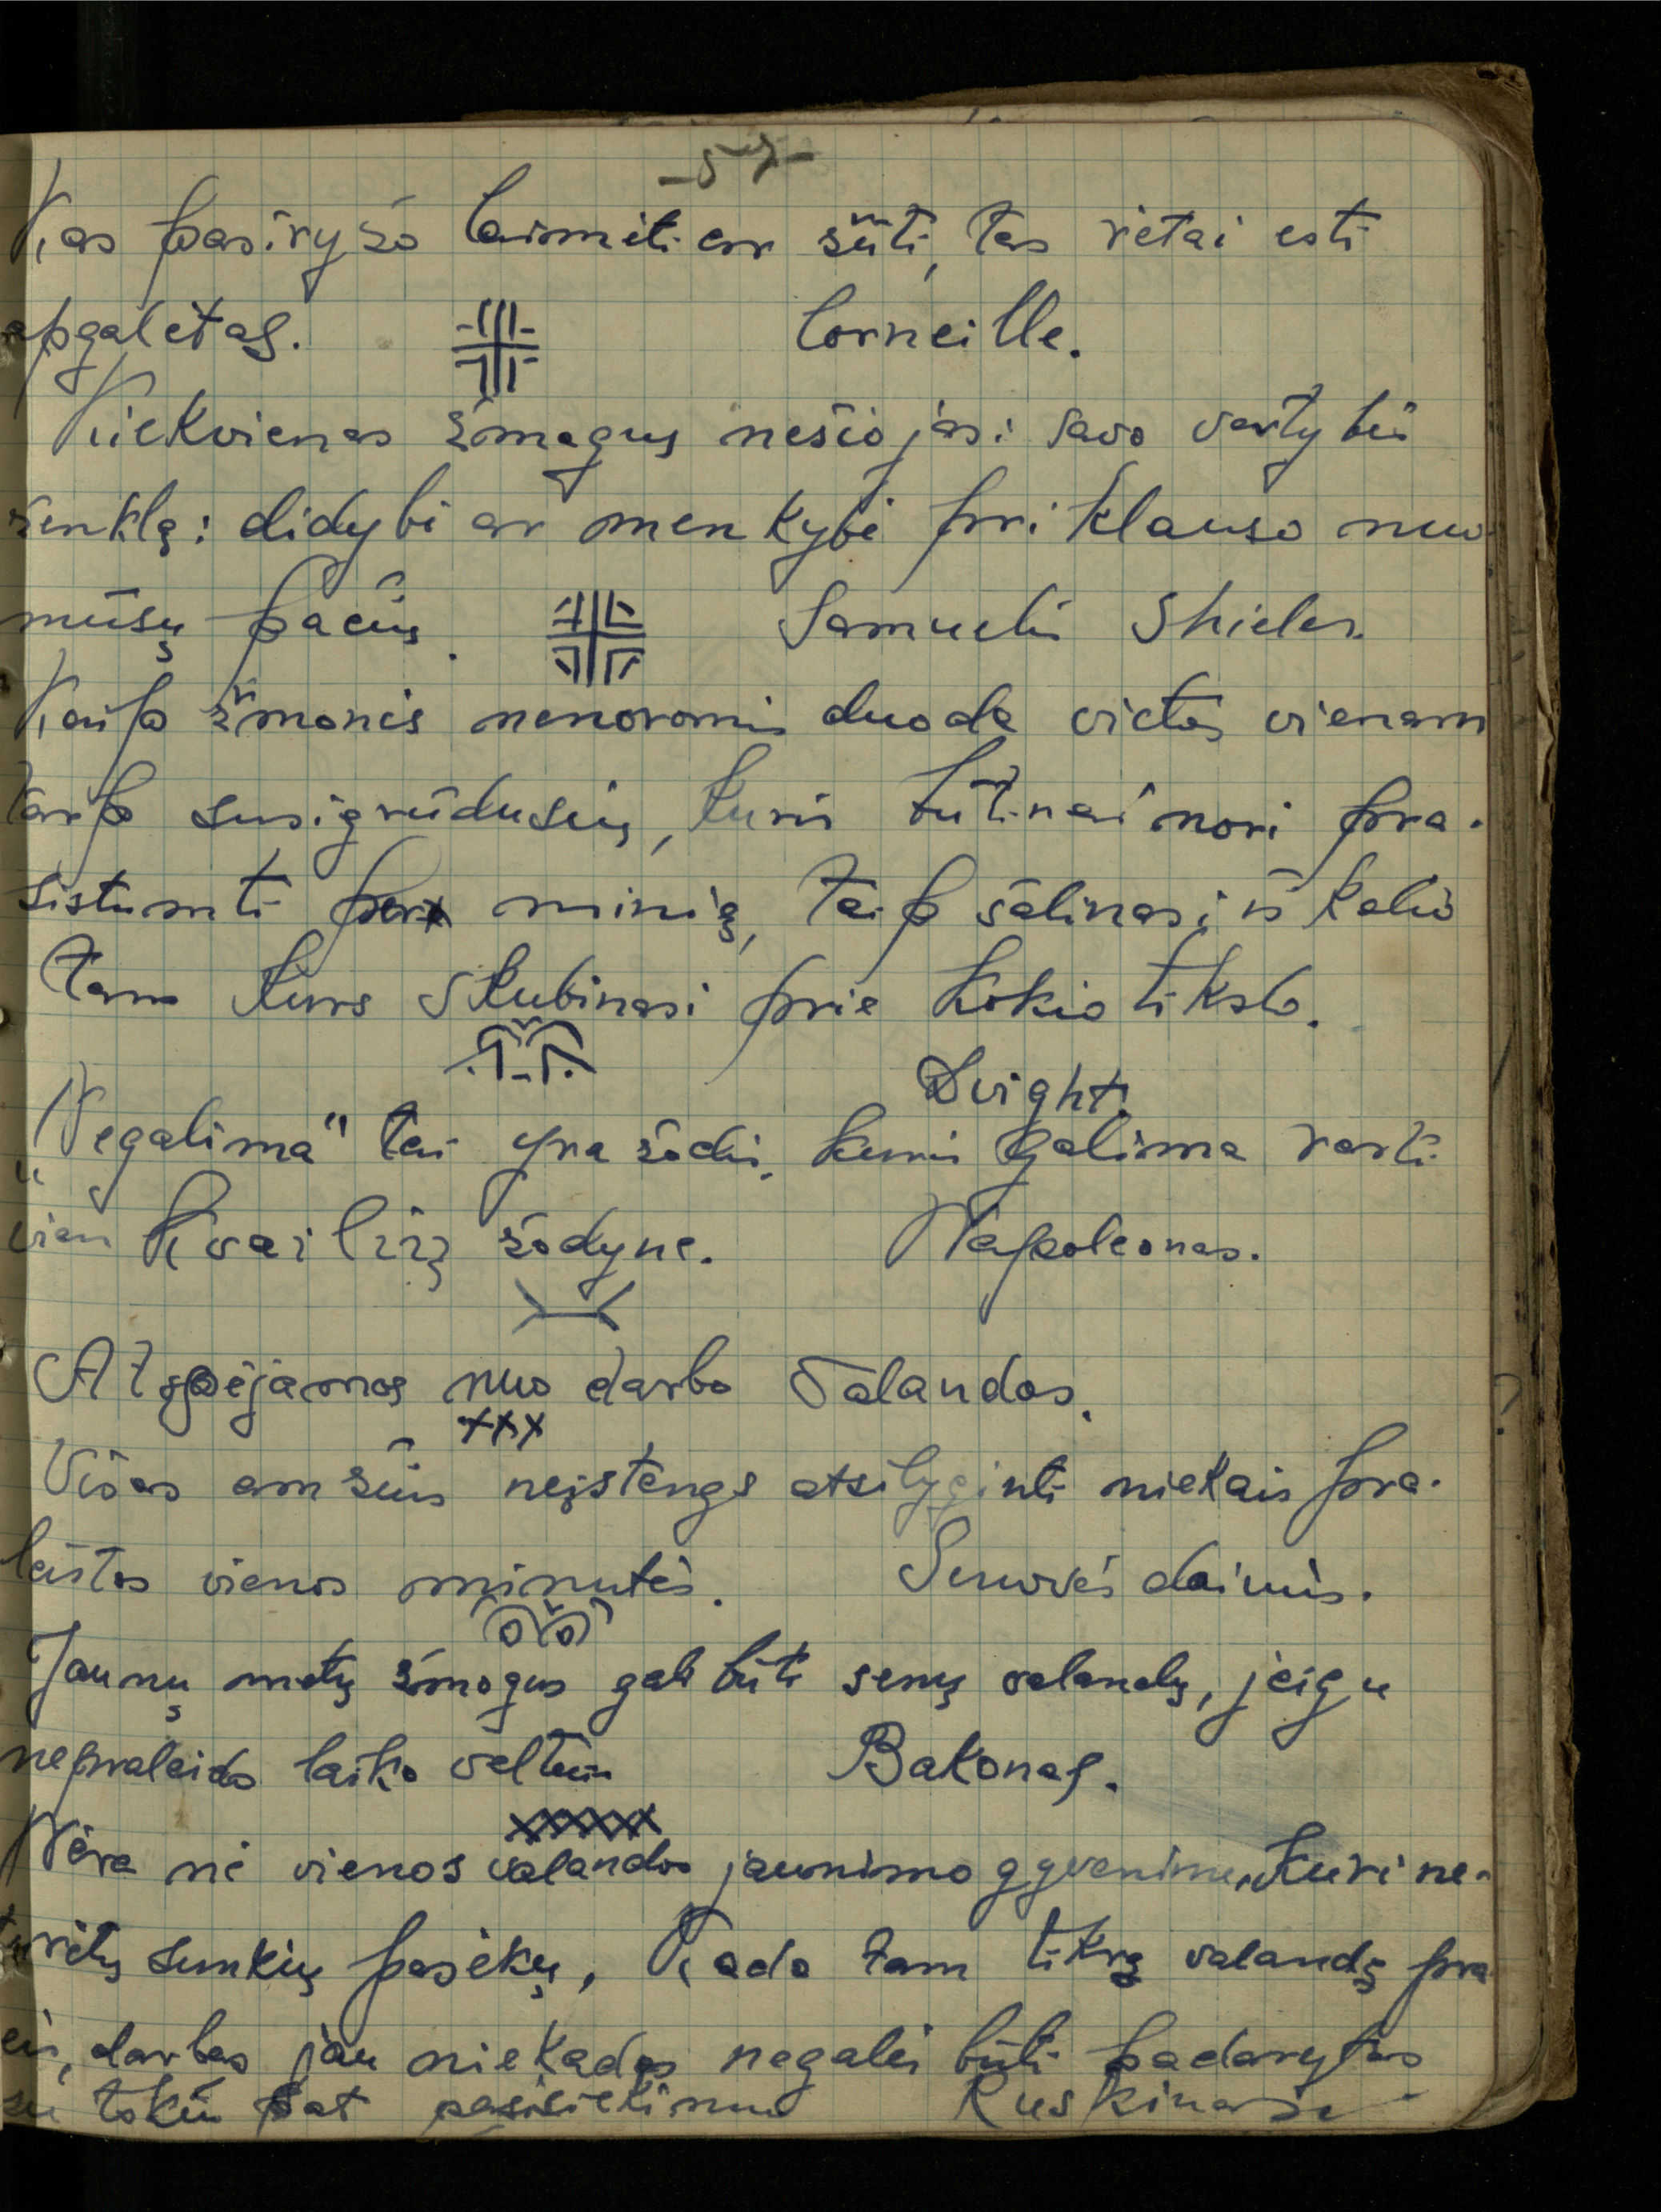 -57-
Kas pasiryžo laimėti ar žūti, tas retai esti
apgalėtas.
Corneille.
Kiekvienas žmogus nešiojasi savo vertybės
ženklą: didybė ar menkybė priklauso nuo
mūsų pačių.
Samuelis
Kaip žmonės nenoromis duoda vietos vienam
tarp susigrūdusių, kuris būtinai nori pra-
sistumti per minią, taip šalinasi iš kelio
tam kurs skubinasi prie kokio tikslo.
Dvight.
„Negalima" tai yra žodis, kuris galima rasti
vien kvailių žodyne. Napoleonas.
Atspėjamos nuo darbo valandos.
xxx
Visas amžius neįstengs atsilyginti niekais pra-
leistos vienos minutės. Senovės dainis.
Jaunų metų žmogus gali būti senų valandų, jeigu
nepraleido laiko veltui Bakonas.
Nėra nė vienos valandos jaunimo ggvenime, kuri ne-
turėtų sunkių pasekų, Kada tam tikrą valandą pra
eis, darbas jau niekados negalės būti padarytas
su tokiu pat pasisiekimu